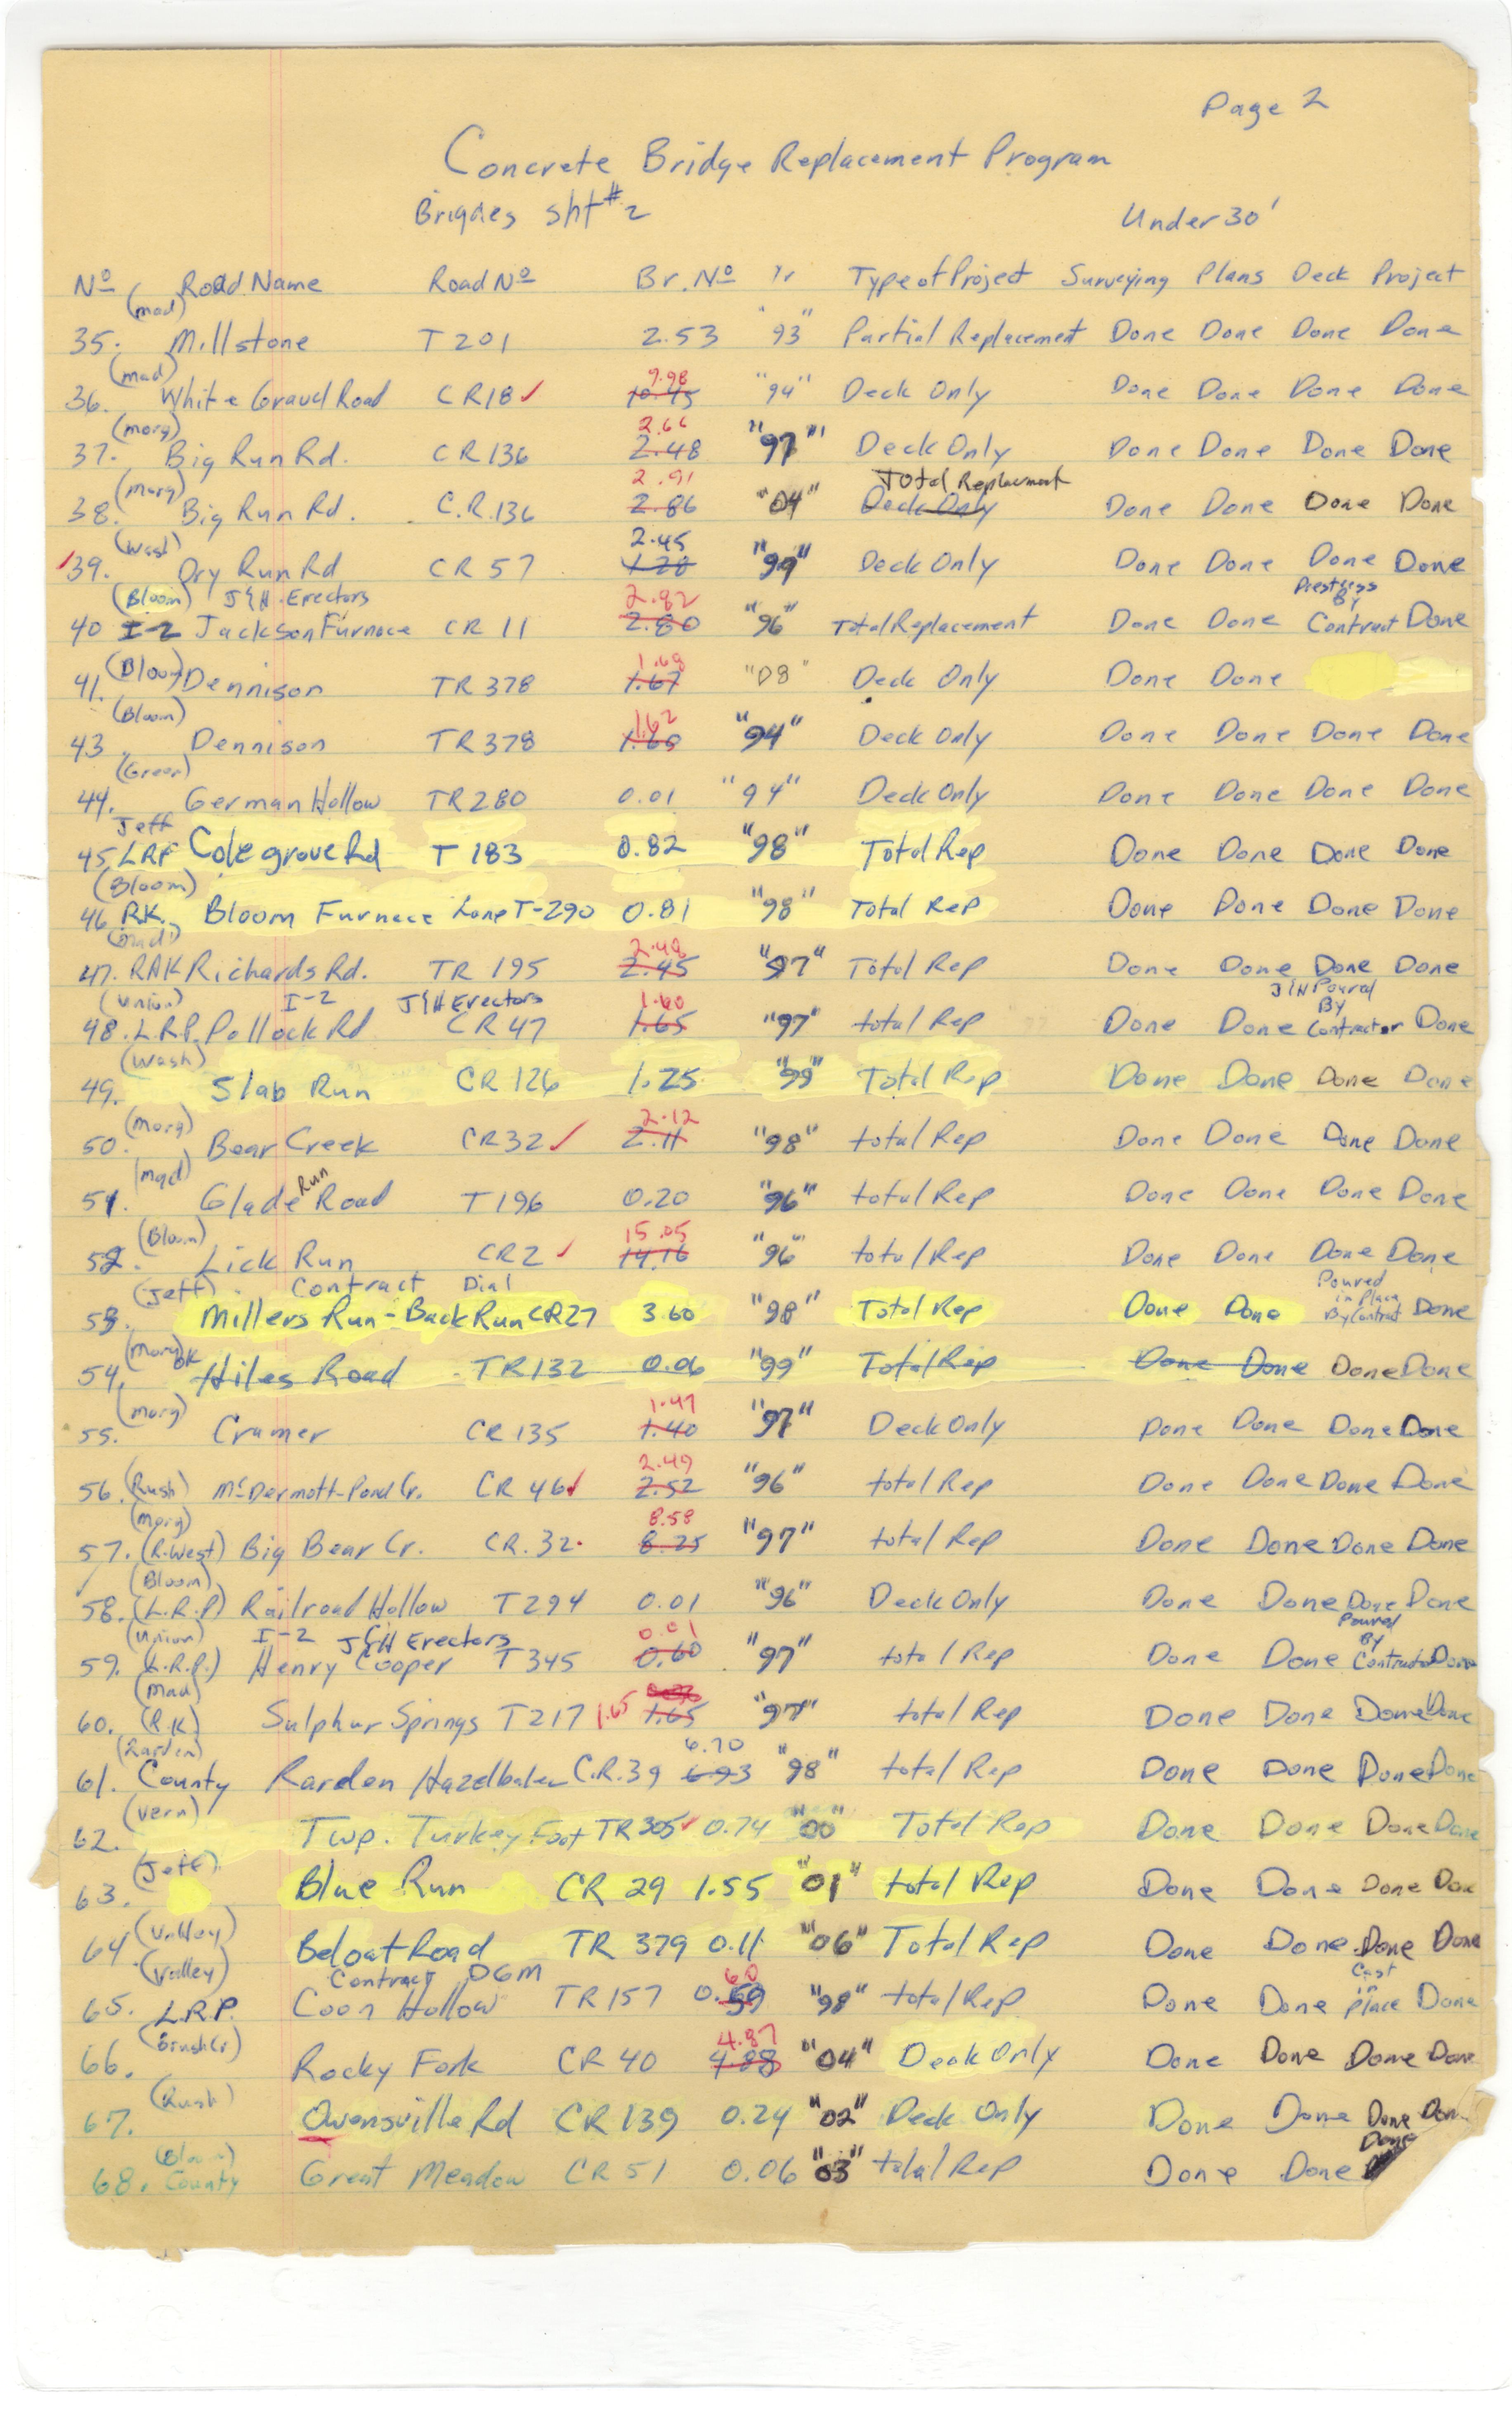 Page 2
Concrete Bridge Replacement Program
Brigdes sht #2 Under 30'
Nº Road Name Road Nº Br. Nº Yr Type of Project Surveying Plans Deck Project
(mad)
35. Millstone T 201 2.53 "93" Partial Replacement Done Done Done Done
(mad) 9.98
36. White Gravel Road CR18 ✓ 10.45 "94" Deck Only Done Done Done Done
(morg) 2.66
37. Big Run Rd. CR 136 2.48 "97" Deck Only Done Done Done Done
(morg) 2.91 Total Replacment
38. Big Run Rd. C.R. 136 2.86 "04" Deck Only Done Done Done Done
(Wash) 2.45
✓39. Dry Run Rd CR 57 1.28 "99" Deck Only Done Done Done Done
(Bloom) J&H Erectors 2.82 Prestress By
40 I-2 Jackson Furnace CR 11 2.80 "96" Total Replacement Done Done Contract Done
(Bloom) 1.68
41. Dennison TR 378 1.67 "08" Deck Only Done Done
(Bloom) 1.62
43. Dennison TR 378 1.60 "94" Deck Only Done Done Done Done
(Green)
44. German Hollow TR 280 0.01 "94" Deck Only Done Done Done Done
Jeff
45. LRP Colegrove Rd T 183 0.82 "98" Total Rep Done Done Done Done
(Bloom)
46 RK. Bloom Furnace Lane T-290 0.81 "98" Total Rep Done Done Done Done
(mad) 2.48
47. RAK Richards Rd. TR 195 2.45 "97" Total Rep Done Done Done Done
(Union) I-2 J&H Erectors 1.60 J&H Poured By
48. L.R.P. Pollock Rd CR 47 1.65 "97" total Rep Done Done Contractor Done
(Wash)
49. Slab Run CR 126 1.25 "99" Total Rep Done Done Done Done
(morg) 2.12
50. Bear Creek CR 32 ✓ 2.11 "98" total Rep Done Done Done Done
(mad) Run
51. Glade Road T 196 0.20 "96" total Rep Done Done Done Done
(Bloom) 15.05
52. Lick Run CR2 ✓ 14.16 "96" total Rep Done Done Done Done
(Jeff) Contract Dial Poured in Place
53. Millers Run - Back Run CR27 3.60 "98" Total Rep Done Done By Contract Done
(morg) OK
54. Hiles Road TR 132 0.06 "99" Total Rep Done Done Done Done
(morg) 1.47
55. Cramer CR 135 1.40 "97" Deck Only Done Done Done Done
2.49
56. (Rush) McDermott-Pond Cr. CR 46 ✓ 2.52 "96" total Rep Done Done Done Done
(morg) 8.58
57. (R.West) Big Bear Cr. CR. 32. 8.25 "97" total Rep Done Done Done Done
(Bloom)
58. (L.R.P) Railroad Hollow T 294 0.01 "96" Deck Only Done Done Done Done
(Union) I-2 J&H Erectors 0.01 Poured By
59. (L.R.P.) Henry Cooper T 345 0.60 "97" total Rep Done Done Contractor Done
(mad)
60. (R.K) Sulphur Springs T 217 1.65 1.65 "97" total Rep Done Done Done Done
(Rarden) 6.70
61. County Rarden Hazelbaker C.R. 39 6.93 "98" total Rep Done Done Done Done
(Vern)
62. Twp. Turkey Foot TR 305 ✓ 0.74 "00" Total Rep Done Done Done Done
(Jeff)
63. Blue Run CR 29 1.55 "01" total Rep Done Done Done Done
(Valley)
64. Beloat Road TR 379 0.11 "06" Total Rep Done Done Done Done
(Valley) Contract DGM 60 Cast in
65. L.R.P. Coon Hollow TR 157 0.59 "98" total Rep Done Done Place Done
(Brush Cr) 4.87
66. Rocky Fork CR 40 4.88 "04" Deck Only Done Done Done Done
(Rush)
67. Owensville Rd CR 139 0.24 "02" Deck Only Done Done Done Done
(Bloom) Done
68. County Great Meadow CR 51 0.06 "03" total Rep Done Done